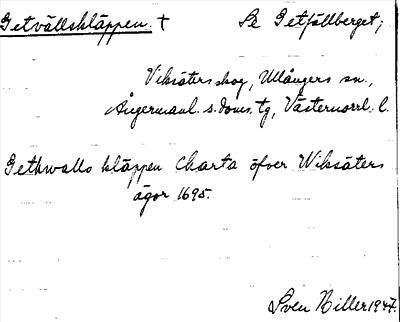 Getvällskläppen. † Se Getfjällberget;
Viksäters skog, Ullångers sn.,
Ångermanl. s. doms. tg, Västernorrl. l.
Gethwalls kläppen Charta öfver Wiksäters
ägor 1695.
Sven Hiller 1947.